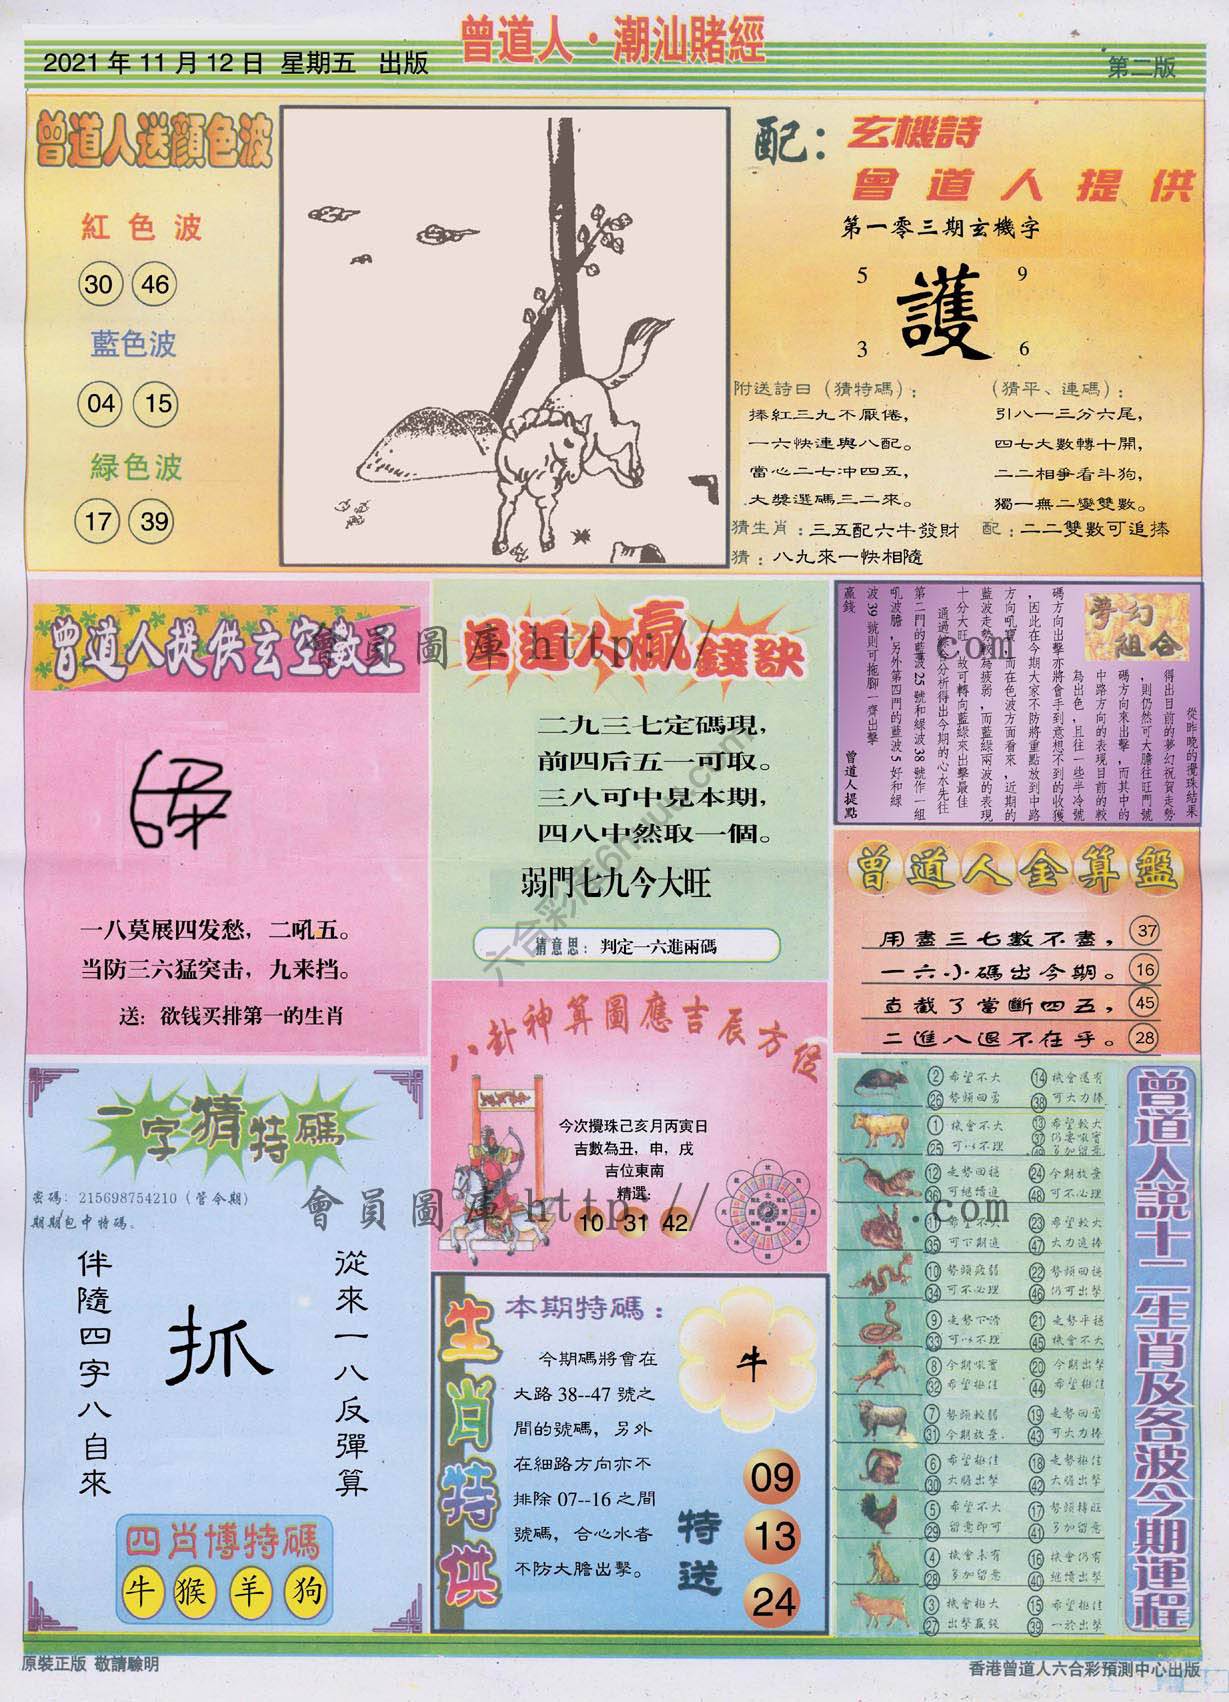 曾道人·潮汕賭經
2021 年 11 月 12 日 星期五 出版
第二版
曾道人送顏色波
紅色波
30 46
藍色波
04 15
緑色波
17 39
配：玄機詩
曾道人提供
第一零三期玄機字
5 9
護
3 6
附送詩曰（猜特碼）：
捧紅三九不厭倦，
一六快連與八配。
當心二七冲四五，
大獎選碼三二來。
猜生肖：三五配六牛發財
猜：八九來一快相隨
（猜平、連碼）：
引八一三分六尾，
四七大數轉十開，
二二相爭看斗狗，
獨一無二變雙數。
配：二二雙數可追捧
曾道人提供玄空數王
一八莫展四发愁，二吼五。
当防三六猛突击，九来挡。
送：欲钱买排第一的生肖
曾道人贏錢訣
二九三七定碼現，
前四后五一可取。
三八可中見本期，
四八中然取一個。
弱門七九今大旺
猜意思：判定一六進兩碼
夢幻
組合
從昨晚的攪珠結果
得出目前的夢幻祝賀走勢
，則仍然可大膽往旺門號
碼方向來出擊，而其中的
中路方向的表現目前的較
為出色，且往一些半冷號
碼方向出擊亦將會手到意想不到的收獲
，因此在今期大家不防將重點放到中路
方向吼寶，而在色波方面看來，近期的
藍波走勢較為疲弱，而藍綠兩波的表現
十分大旺，故可轉向藍綠來出擊最佳
通過綜合分析得出今期的心水先往
第二門的藍波25號和綠波38號作一組
吼波膽，另外第四門的藍波5好和綠
波39號則可拖腳一齊出擊
贏錢
曾道人提點
曾道人金算盤
用盡三七數不盡， 37
一六小碼出今期。 16
直截了當斷四五， 45
二進八退不在乎。 28
八卦神算圖應吉辰方位
今次攪珠己亥月丙寅日
吉數為丑，申，戌
吉位東南
精選:
10 31 42
一字猜特碼
密碼：215698754210（管令期）
期期包中特碼。
從來一八反彈算
抓
伴隨四字八自來
四肖博特碼
牛 猴 羊 狗
生肖特供
本期特碼：
今期碼將會在
大路 38--47 號之
間的號碼，另外
在細路方向亦不
排除 07--16 之間
號碼，合心水者
不防大膽出擊。
牛
特送
09
13
24
曾道人説十二生肖及各波今期運程
2 希望不大 14 機會還有
26 勢頭回勇 38 可大力捧
1 機會不大 13 希望較大
25 可以不理 37 仍要吼實
49 多加留意
12 走勢回穩 24 今期放棄
36 可繼續追 48 可不必理
11 希望不大 23 希望較大
35 可下期追 47 大力追捧
10 勢頭疲弱 22 勢頭回穩
34 可不必理 46 仍可出擊
9 走勢下滑 21 走勢平穩
33 可以不理 45 機會不大
8 今期吼實 20 今期出擊
32 希望極佳 44 希望極佳
7 勢頭較弱 19 走勢回勇
31 今期放棄. 43 可大力捧
6 希望極佳 18 走勢極佳
30 大膽出擊 42 大膽出擊
5 希望不大 17 勢頭轉旺
29 留意即可 41 多加留意
4 機會未有 16 機會仍有
28 多加留意 40 繼續出擊
3 機會極大 15 希望極大
27 出擊贏錢 39 一於出擊
原裝正版 敬請驗明
香港曾道人六合彩預測中心出版
會員圖庫 http:// .com
會員圖庫 http:// .com